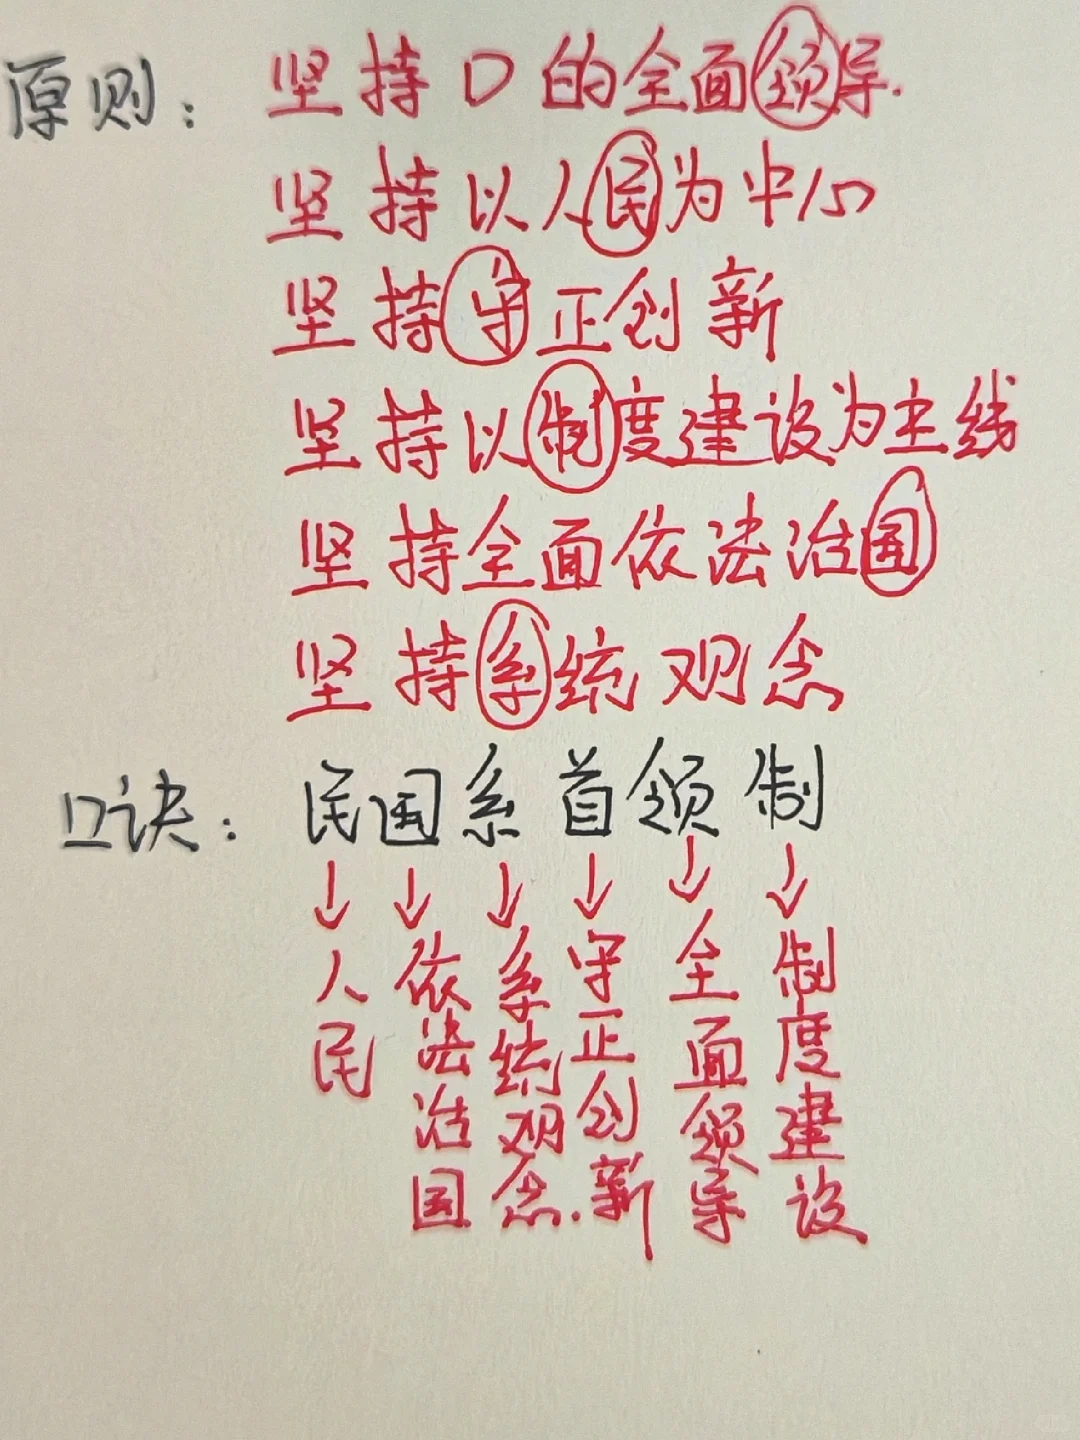 原则：坚持D的全面领导.
坚持以人民为中心
坚持守正创新
坚持以制度建设为主线
坚持全面依法治国
坚持系统观念
口诀：民国系首领制
人民
依法治国
系统观念.
守正创新
全面领导
制度建设